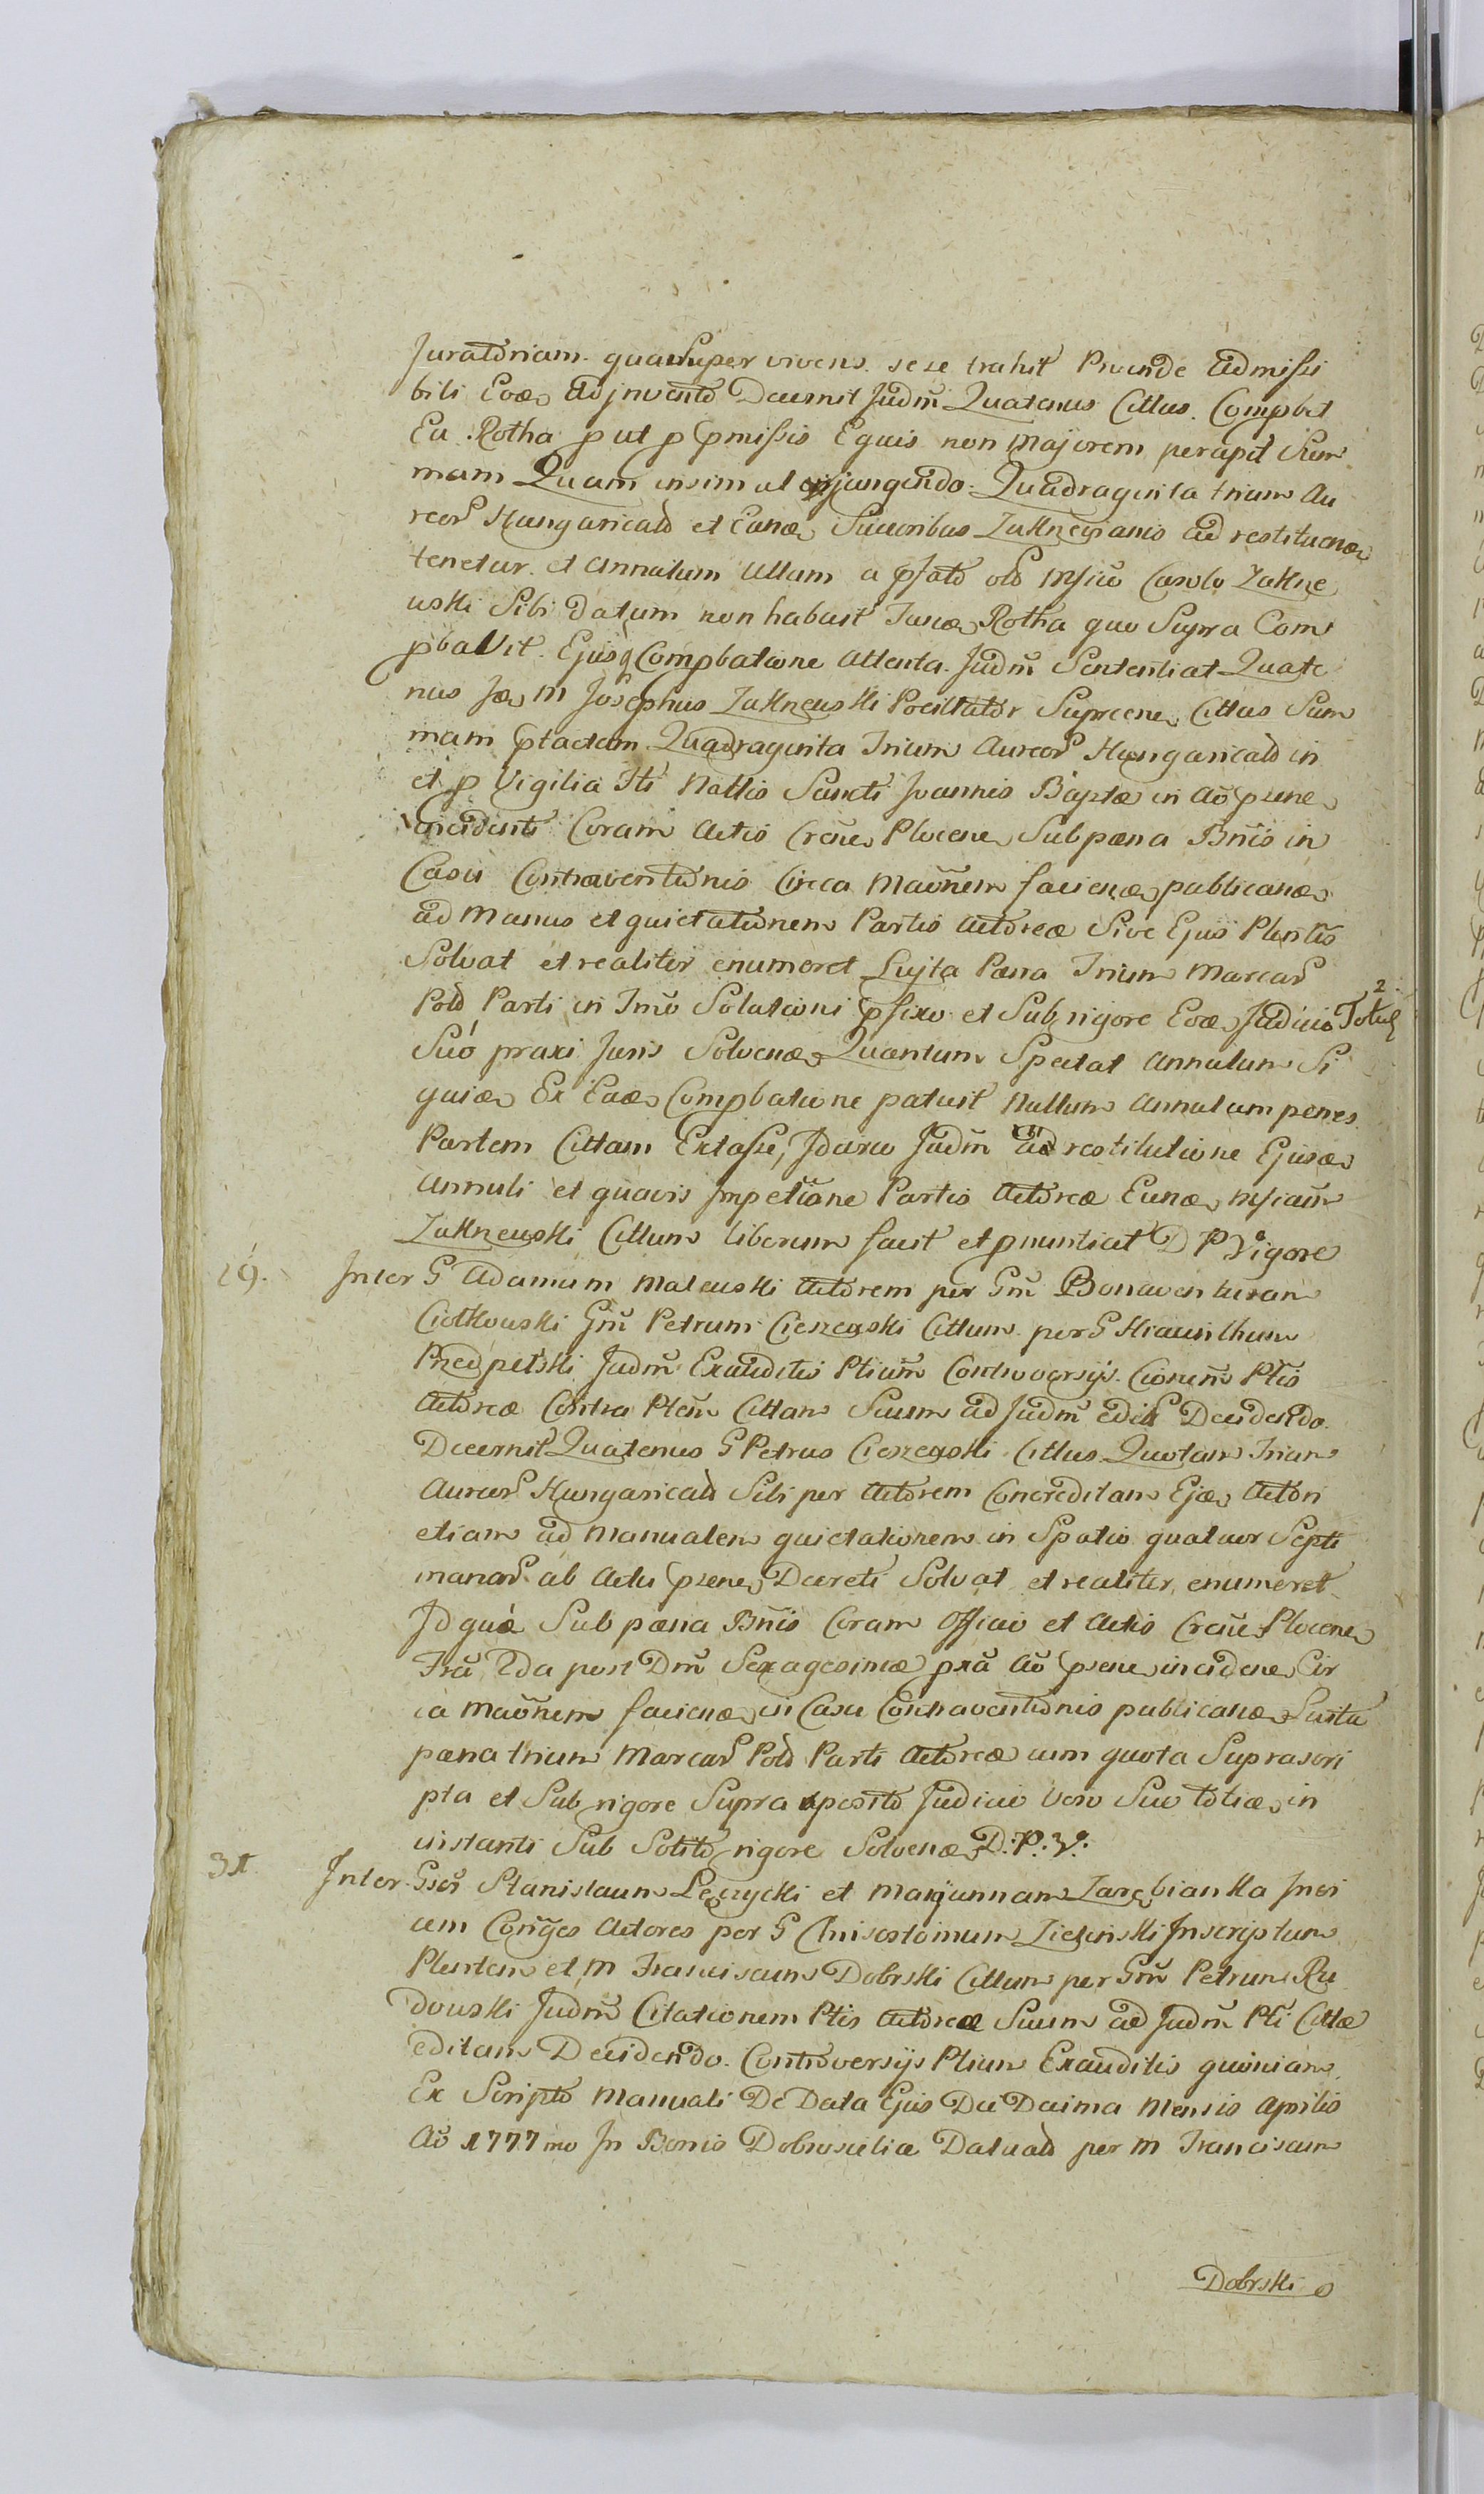 Juratoriam quasuper vivens sese trahit Proinde admissi
bili Eoæ adjnvento Decernit Judm̃ Quatenus Cittus Compbet
Ea Rotha put p pmissis Equis non Majorem percepit Sum
mam Quam insimul conjungendo Quadraginta trium Au
reor Hungaricald et Eanæ Succoribus Zakrzewianis ad restituenæ
tenetur et Annulum Ullum a pfato old Mfico Carolo Zakrze
wski Sibi datum non habuit Rotha quo Supra Com
pbavit Ejusq Compbatione attenta Judm̃ Sententiat Quate
nus M Josephus Zakrzewski Cittus Sum
mam ptactam Quadraginta Trium Aureor Hungaricald in
et p Vigilia Fti Natlis Sancti Joannis Baptæ in Ao psene
incidenti Coram Actis Crene Plocene Sub pæna Bnis in
Casu Contraventionis Circa Maõnem facienæ publicanæ
ad Manus et quietationem Partis Actoreæ Sive Ejus Plentis
Solvat et realiter enumeret Luita Pæna Trium Marcar
Pold Parti in Tmo Solutioni pfixo et Sub rigore Eoæ Judicio 2 Totus
Suo praxi Juris Solvenæ Quantum Spectat Annulum Si
quiæ Ex Eaæ Compbatione patuit Nullum Annulum penes
Partem Cittam Extasse, Idcirco Judm̃ a restitutione Ejusæ
Annuli et quavis Jmpetione Partis Actoreæ Eunæ Mficum
Zakrzewski Cittum liberum facit et pnuntiat D P Vigore
29. Inter G Adamum Malewski Actorem per Gm̃ Bonaventuram
Ciotkowski Gm̃ Petrum Cieszewski Cittum per G Hiacinthum
Przedpelski Judm̃ Exauditis Ptium Controversijs Cionem̃ Ptis
Actoreæ Contra Ptem̃ Cittam Suum ad Judm̃ edit Decidendo
Decernit Quatenus G Petrus Cieszewski Cittus Quotam Trium
Aureor Hungaricald Sibi per Actorem Concreditam Ejæ Actori
etiam ad Manualem quietationem in Spatio quatuor Septi
manar ab Actu psene Decreti Solvat et realiter enumeret
Id quá Sub pæna Bnis Coram Officio et Actis Crene Plocene
Fra 2da post Dm̃ Sexagesimæ pxa Ao psene incidene Cir
ca Maõnem facienæ in Casu Contraventionis publicanæ Luita
pæna trium Marcar Pold Parti Actoreæ cum quota Suprascri
pta et Sub rigore Supra aposito Judicio Vero Suo totiæ in
instanti Sub Solito rigore Solvenæ D: P: V:
31 Inter Gsos Stanislaum Łęczycki et Maryannam Zarębianka Invi
cem Conges Actores per G Chrisostomum Zielinski Inscriptum
Plentem et M Franciscum Dobrski Cittum per Gm̃ Petrum Ru
dowski Judm̃ Citationem Ptis Actoreæ Suum ad Judm̃ Pti Cittæ
editam Decidendo Controversijs Ptium Exauditis quoniam
Ex Scripto Manuali De Data Ejus Die Decima Mensis Aprilis
Ao 1777 mo In Bonis Dobrosielice Datuald per M Franciscum
Dobrski